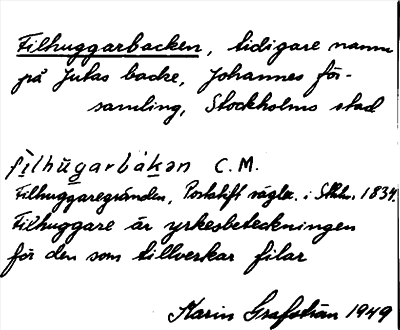 Filhuggarbacken, tidigare namn
på Jutas backe, Johannes för-
samling, Stockholms stad
fìlhùgarbàkən C.M.
Filhuggaregränden, i Sthlm. 1834.
Filhuggare är yrkesbeteckningen
för den som tillverkar filar
Karin Grafström 1949